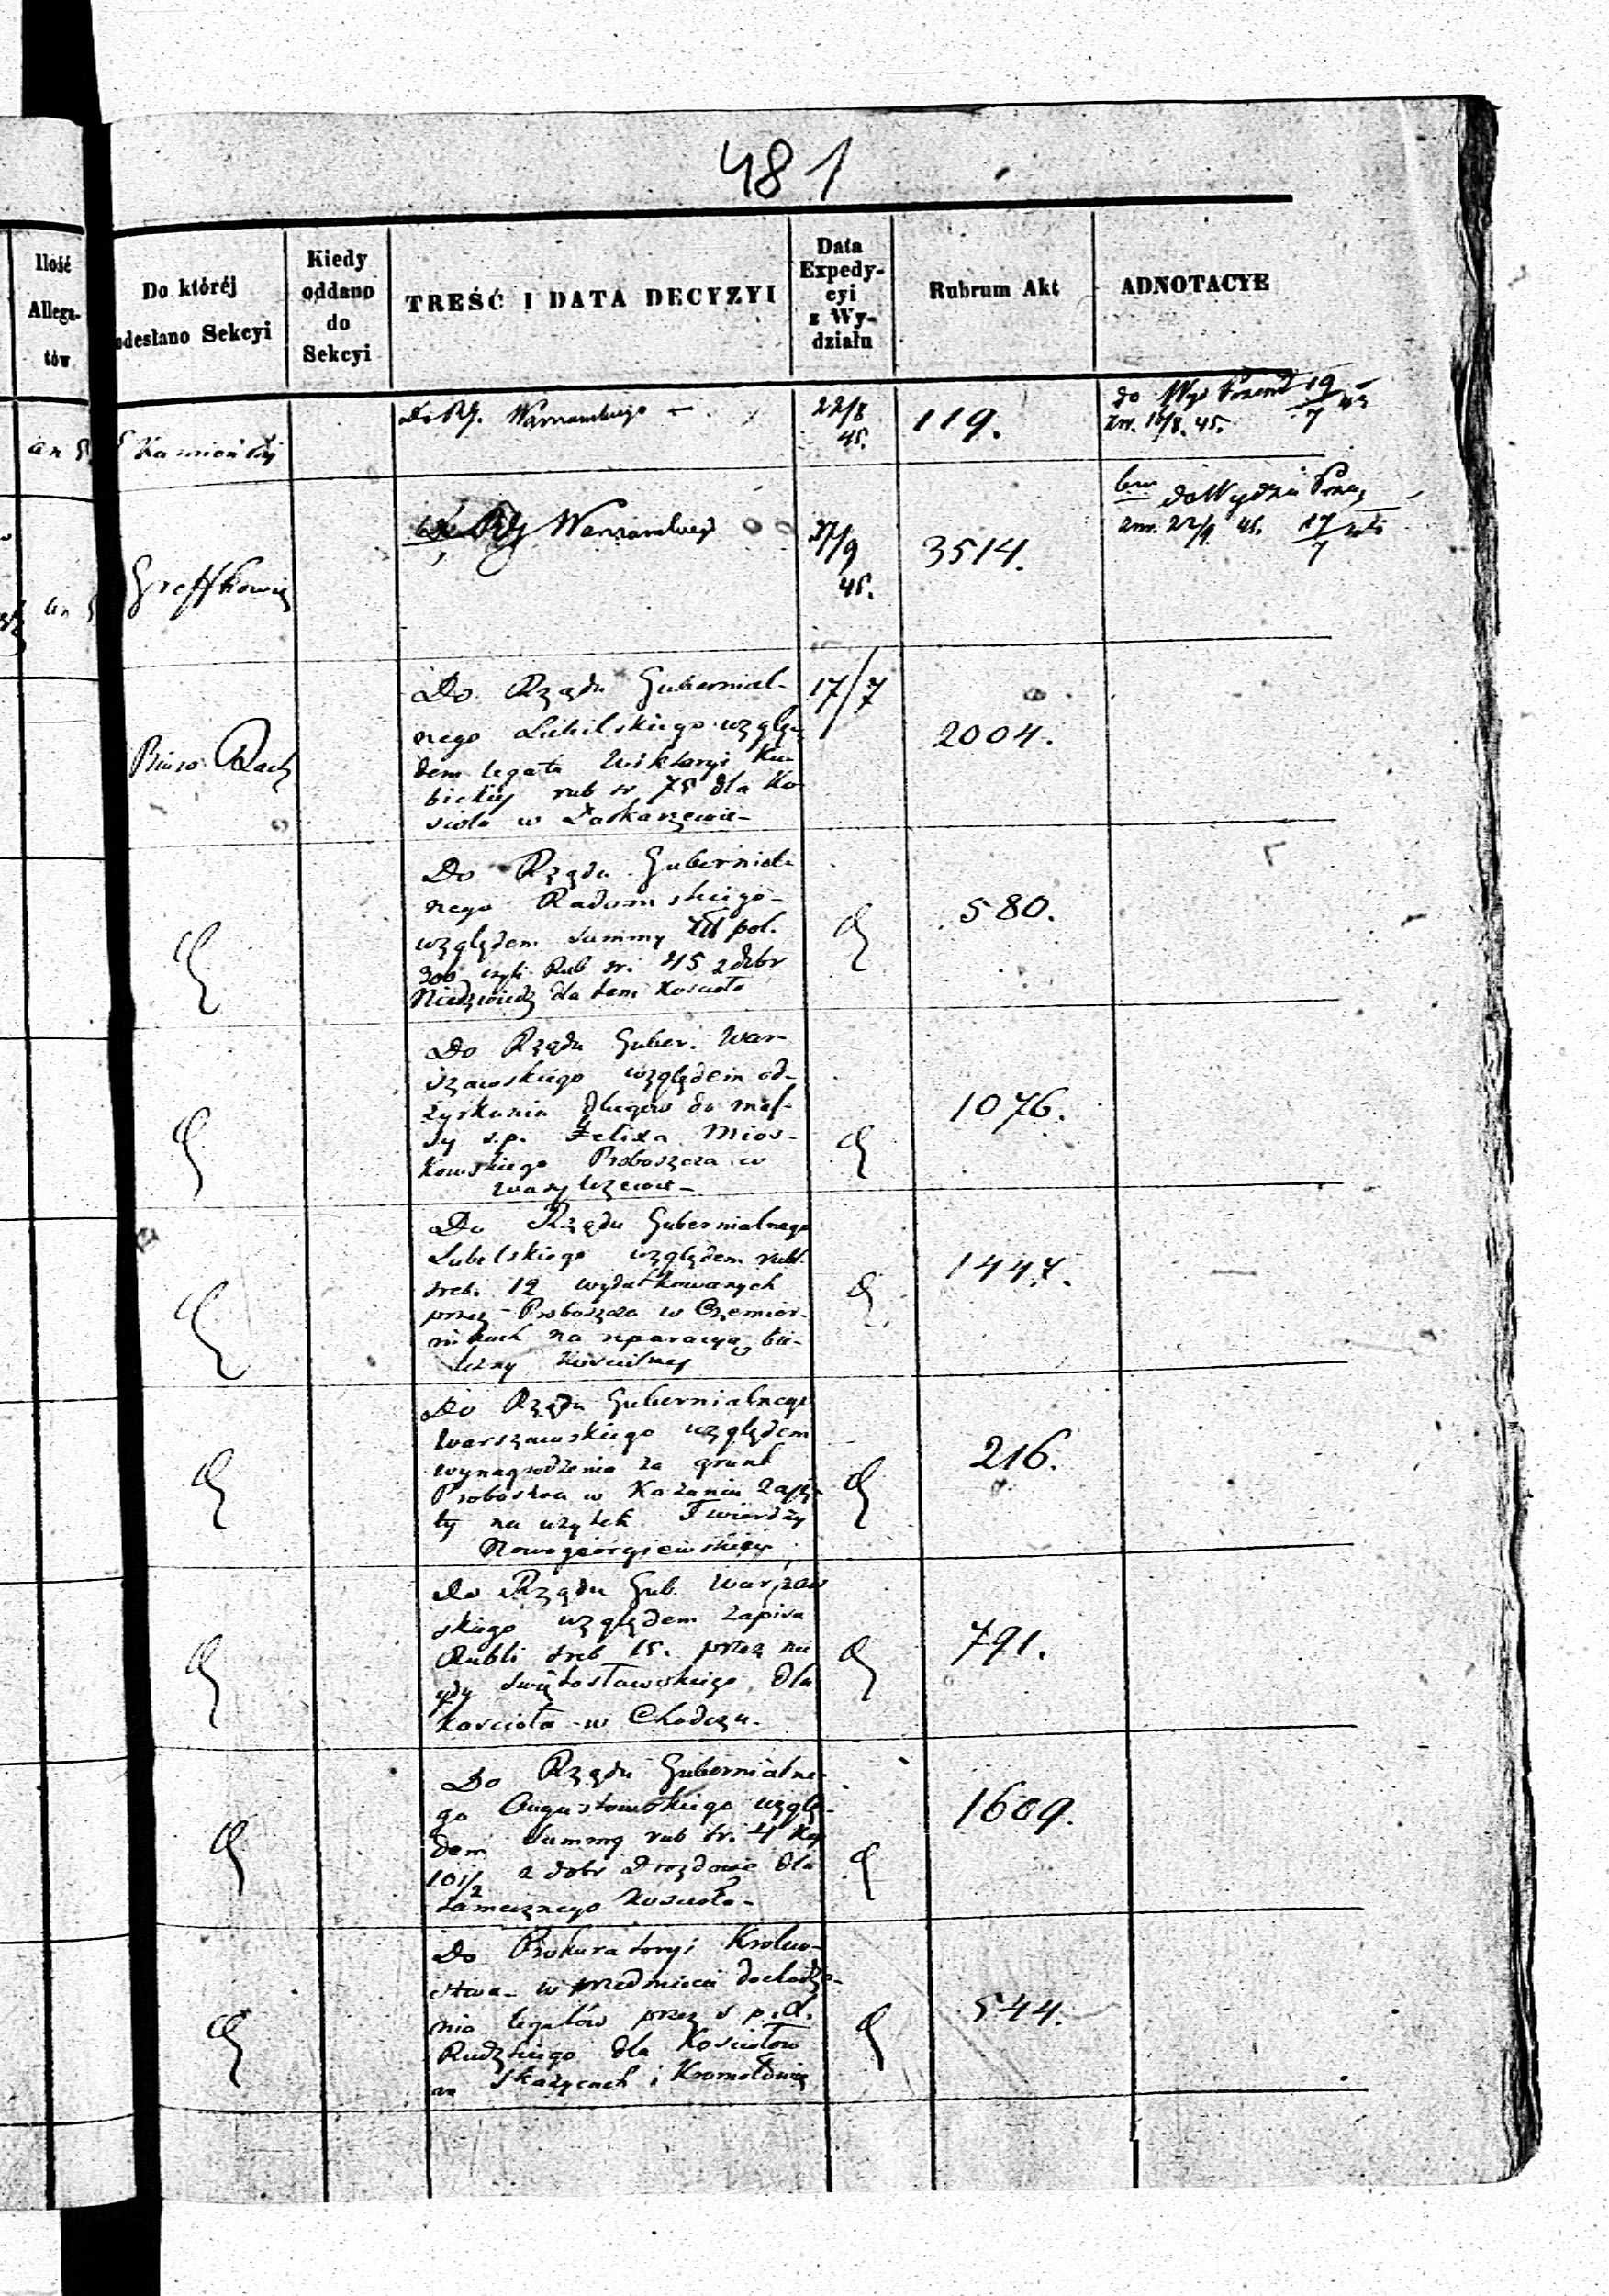 481
Ilość
Allega-
tów
Do któréj
odesłano Sekcyi
Kiedy
oddano
do
Sekcyi
TREŚĆ I DATA DECYZYI
Data
Expedy-
cyi
z Wy-
działu
Rubrum Akt
ADNOTACYE
Kamieński
Do RG. Warszawskiego
22/8
45.
119.
do Wyd 19
7
zw. 16/8. 45.
Do RG Warszawskiego
27/9
45.
3514.
do Wydzia
zw. 22/9 45. 17
7
Biuro Rach
Do Rządu Gubernial-
nego Lubelskiego wzglę-
dem legatu Wiktoryi Ku-
bickiej rub sr. 75 dla Ko-
sioła w Łaskarzewie
17/7
2004.
Do Rządu Gubernial-
nego Radomskiego
względem Summy Złt pol.
300 czyli Rub sr. 45 z dobr
Niedzwiedz dla tam Koscioła
580.
Do Rządu Guber. War-
szawskiego względem od-
zyskania długow do mas-
sy s.p. Felixa Mios-
kowskiego Proboszcza w
1076.
Do Rządu Gubernialnego
Lubelskiego względem rubl.
sreb. 12 wydatkowanych
przez Proboszcza w Czemier-
nikach na reparacyą bie-
lizny Koscielnej
1447.
Do Rządu Gubernialnego
Warszawskiego względem
wynagrodzenia za grunt
Proboszcza w Kazaniu zaję-
ty na użytek Twierdzy
Nowogeorgiewskiej
216.
Do Rządu Gub. Warszaw
skiego względem zapisu
Rubli sreb 15. przez nie
gdy Swiętosławskiego dla
Koscioła w Chodczu.
791.
Do Rządu Gubernialne-
go Augustowskiego wzglę-
dem Summy rub sr. 4 Kop
10 1/2 z dobr Drozdowo dla
tamecznego Koscioła
1609.
Do Prokuratoryi Krolew-
stwa w przedmiocie dochodze-
nia legatów przez s p. d.
Rudzkiego dla Kosciołow
w Skarzycach i Kromołowie
544.